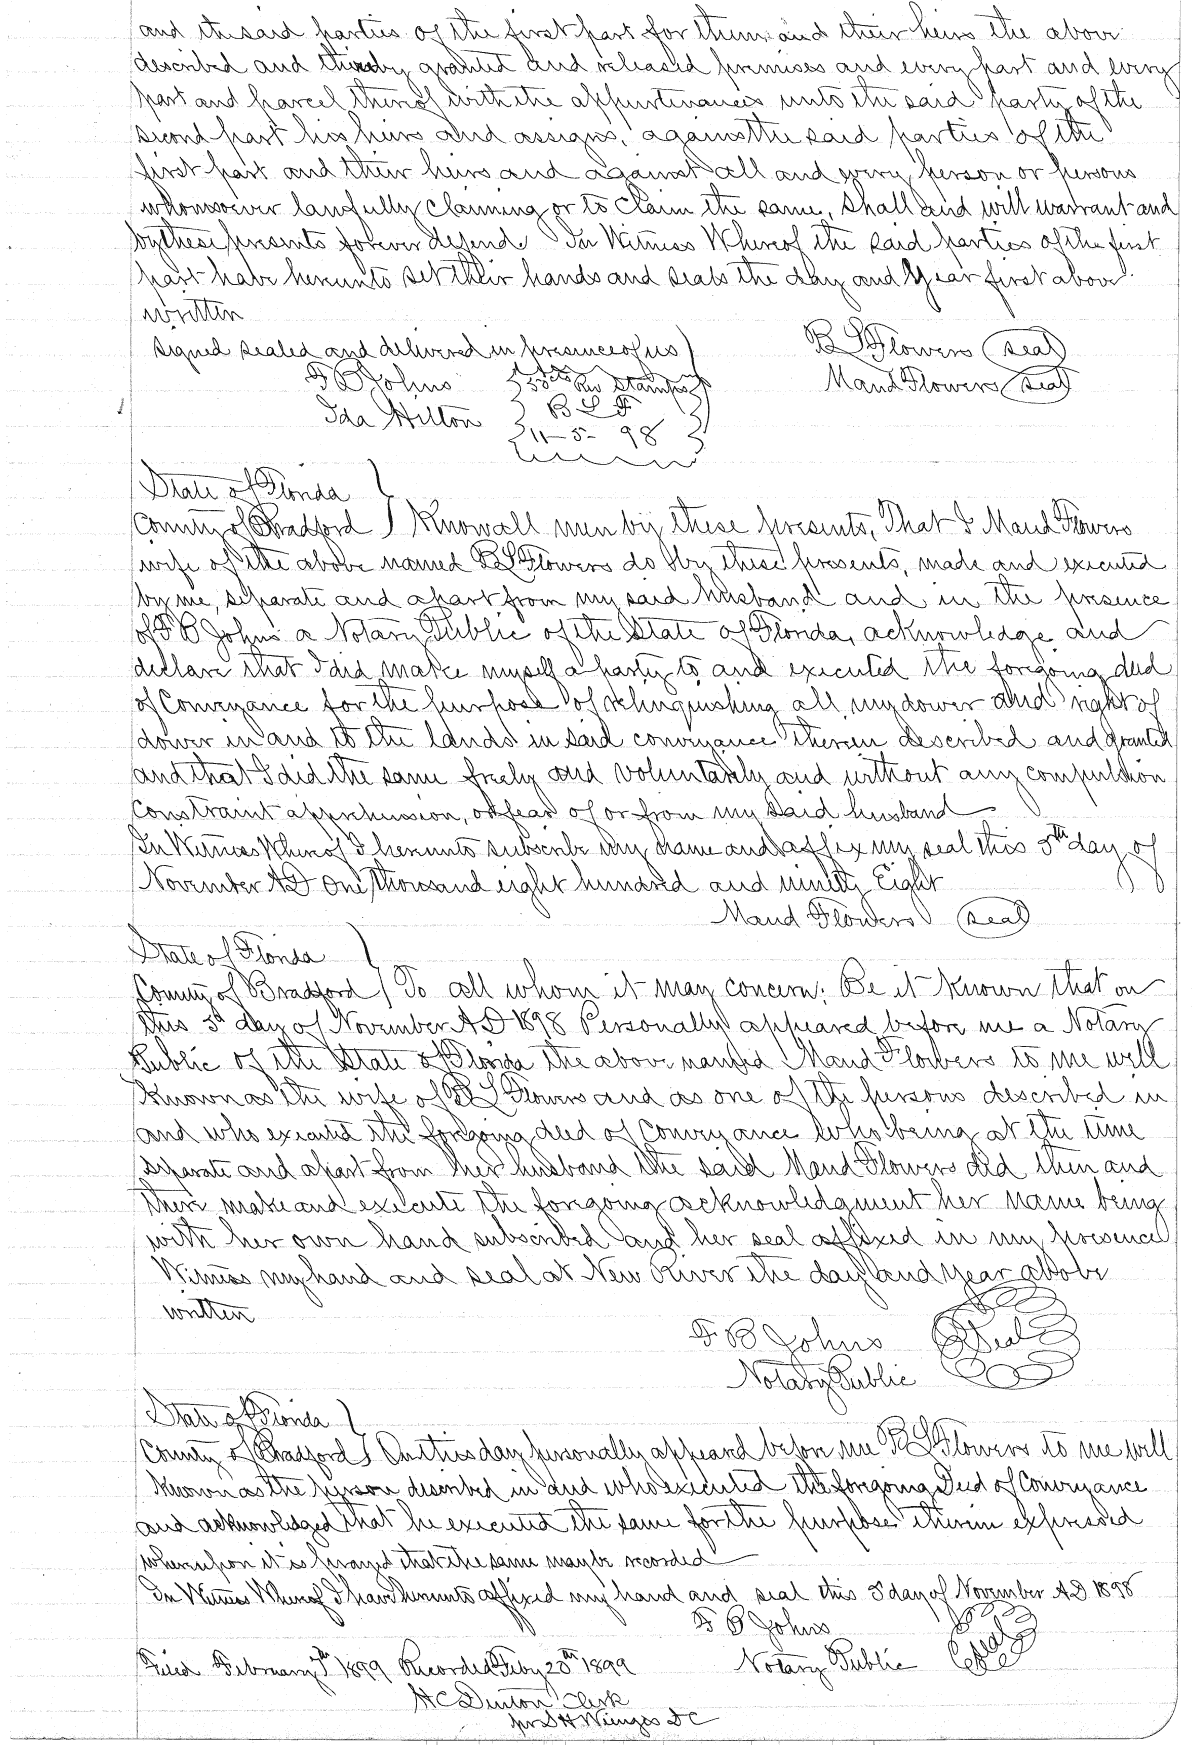 and the said parties of the first part for them and their heirs the above
described and thereby granted and released premises and every part and every
part and parcel thereof with the appurtinances unto the said party of the
second part his heirs and assigns, against the said parties of the
first part and their heirs and against all and every person or persons
whomsoever lawfully claiming or to claim the same, shall and will warrant and
by these presents forever defend In Witness Whereof the said parties of the first
part have hereunto set their hands and seals the day and Year first above
written
signed sealed and delivered in presence of us
B L Flowers seal
F B Johns
50 cts Rev Stamps
Maud Flowers seal
Ida Hilton
B L F
11-5-98
State of Florida
County of Bradford Know all men by these presents, That I Maud Flowers
wife of the above named B L Flowers do by these presents, made and executed
by me, separate and apart from my said husband and in the presence
of F B Johns a Notary Public of the State of Florida, acknowledge and
declare that I did make myself a party to and executed the forgoing deed
of Conveyance for the purpose of relinquishing all my dower and right of
dower in and to the lands in said conveyance therein described and granted
and that I did the same freely and voluntarily and without any compulsion
constraint apprehension, or fear of or from my said husband
In Witness Wherof I hereunto subscribe my name and affix my seal this 5th day of
November A D One thousand eight hundred and ninety Eight
Maud Flowers seal
State of Florida
County of Bradford To all whom it may concern: Be it Known that on
this 5 day of November A D 1898 Personally appeared before me a Notary
Public of the State of Florida the above named Maud Flowers to me well
Known as the wife of B L Flowers and as one of the persons described in
and who executed the forgoing deed of Conveyance who being at the time
separate and apart from her husband the said Maud Flowers did then and
there make and execute the forgoing acknowledgment her name being
with her own hand subscribed and her seal affixed in my presence
Witness my hand and seal at New River the day and year above
written
F B Johns Seal
Notary Public
State of Florida
County of Bradford On this day personally appeard before me B L Flowers to me well
Known as the person described in and who executed the forgoing Deed of Conveyance
and acknowledged that he executed the same for the purpose therein expressed
whereupon it is prayed that the same may be recorded
In Witness Wherof I have hereunto affixed my hand and seal this 5 day of November A D 1898
F B Johns
Filed February 1899 Recorded Feby 20th 1899 Notary Public Seal
H C Denton Clerk
D C